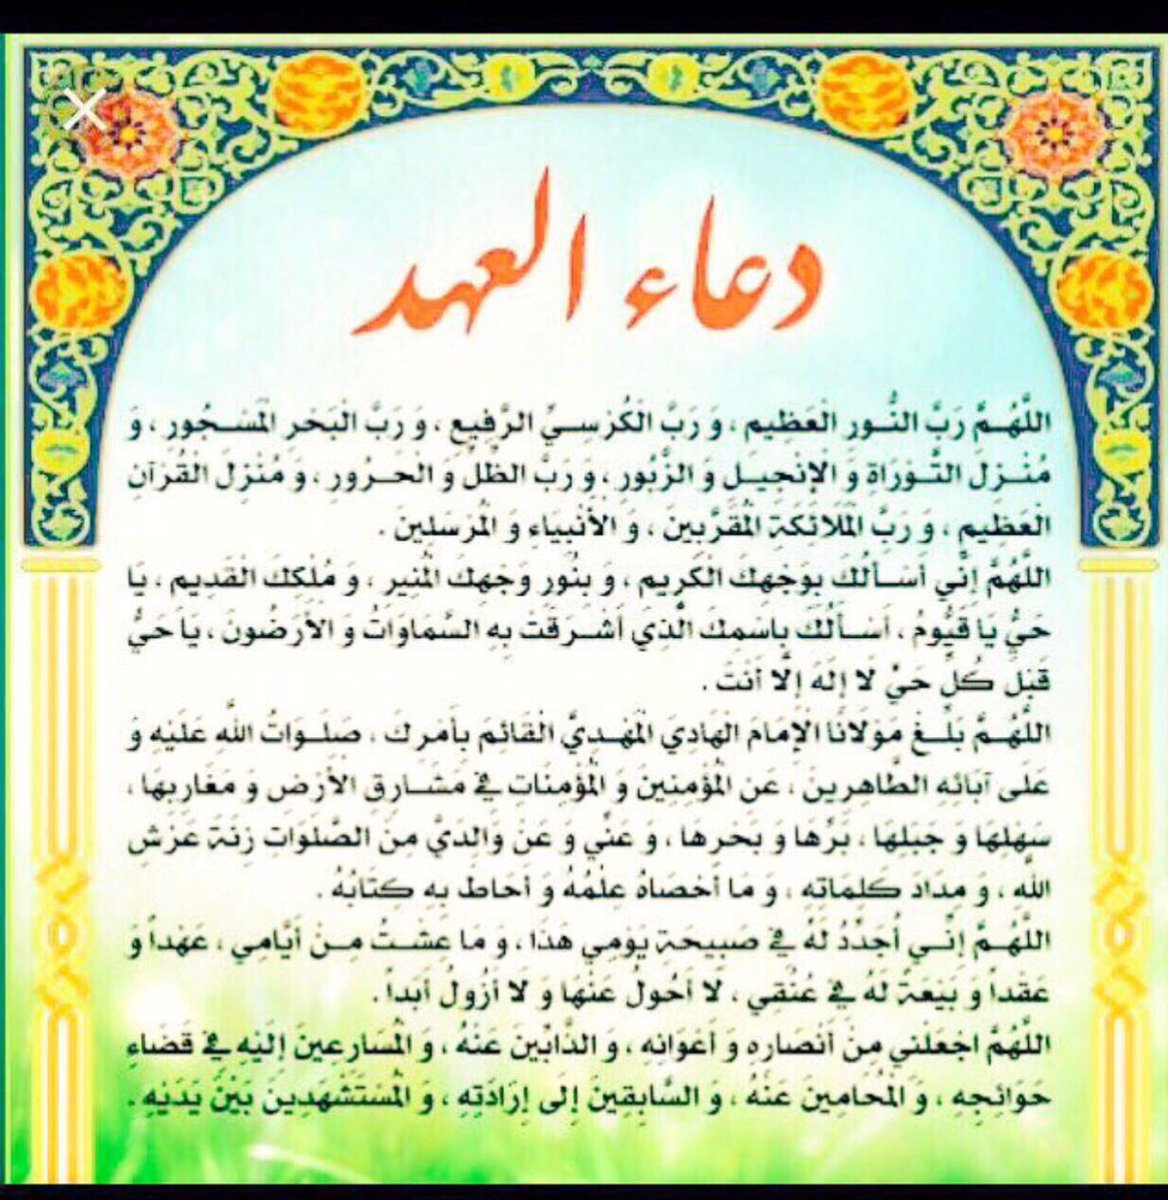 دعاء العهد
اللَّهُمَّ رَبَّ النُّورِ الْعَظِيمِ ، وَ رَبَّ الْكُرْسِيِّ الرَّفِيعِ ، وَ رَبَّ الْبَحْرِ الْمَسْجُورِ ، وَ
مُنْزِلَ التَّوْرَاةِ وَ الْإِنْجِيلِ وَ الزَّبُورِ ، وَ رَبَّ الظِّلِّ وَ الْحَرُورِ ، وَ مُنْزِلَ الْقُرْآنِ
الْعَظِيمِ ، وَ رَبَّ الْمَلَائِكَةِ الْمُقَرَّبِينَ ، وَ الْأَنْبِيَاءِ وَ الْمُرْسَلِينَ .
اللَّهُمَّ إِنِّي أَسْأَلُكَ بِوَجْهِكَ الْكَرِيمِ ، وَ بِنُورِ وَجْهِكَ الْمُنِيرِ ، وَ مُلْكِكَ الْقَدِيمِ ، يَا
حَيُّ يَا قَيُّومُ ، أَسْأَلُكَ بِاسْمِكَ الَّذِي أَشْرَقَتْ بِهِ السَّمَاوَاتُ وَ الْأَرَضُونَ ، يَا حَيُّ
قَبْلَ كُلِّ حَيٍّ لَا إِلَهَ إِلَّا أَنْتَ .
اللَّهُمَّ بَلِّغْ مَوْلَانَا الْإِمَامَ الْهَادِيَ الْمَهْدِيَّ الْقَائِمَ بِأَمْرِكَ ، صَلَوَاتُ اللَّهِ عَلَيْهِ وَ
عَلَى آبَائِهِ الطَّاهِرِينَ ، عَنِ الْمُؤْمِنِينَ وَ الْمُؤْمِنَاتِ فِي مَشَارِقِ الْأَرْضِ وَ مَغَارِبِهَا ،
سَهْلِهَا وَ جَبَلِهَا ، بَرِّهَا وَ بَحْرِهَا ، وَ عَنِّي وَ عَنْ وَالِدَيَّ مِنَ الصَّلَوَاتِ زِنَةَ عَرْشِ
اللَّهِ ، وَ مِدَادَ كَلِمَاتِهِ ، وَ مَا أَحْصَاهُ عِلْمُهُ وَ أَحَاطَ بِهِ كِتَابُهُ .
اللَّهُمَّ إِنِّي أُجَدِّدُ لَهُ فِي صَبِيحَةِ يَوْمِي هَذَا ، وَ مَا عِشْتُ مِنْ أَيَّامِي ، عَهْداً وَ
عَقْداً وَ بَيْعَةً لَهُ فِي عُنُقِي ، لَا أَحُولُ عَنْهَا وَ لَا أَزُولُ أَبَداً .
اللَّهُمَّ اجْعَلْنِي مِنْ أَنْصَارِهِ وَ أَعْوَانِهِ ، وَ الذَّابِّينَ عَنْهُ ، وَ الْمُسَارِعِينَ إِلَيْهِ فِي قَضَاءِ
حَوَائِجِهِ ، وَ الْمُحَامِينَ عَنْهُ ، وَ السَّابِقِينَ إِلَى إِرَادَتِهِ ، وَ الْمُسْتَشْهَدِينَ بَيْنَ يَدَيْهِ .